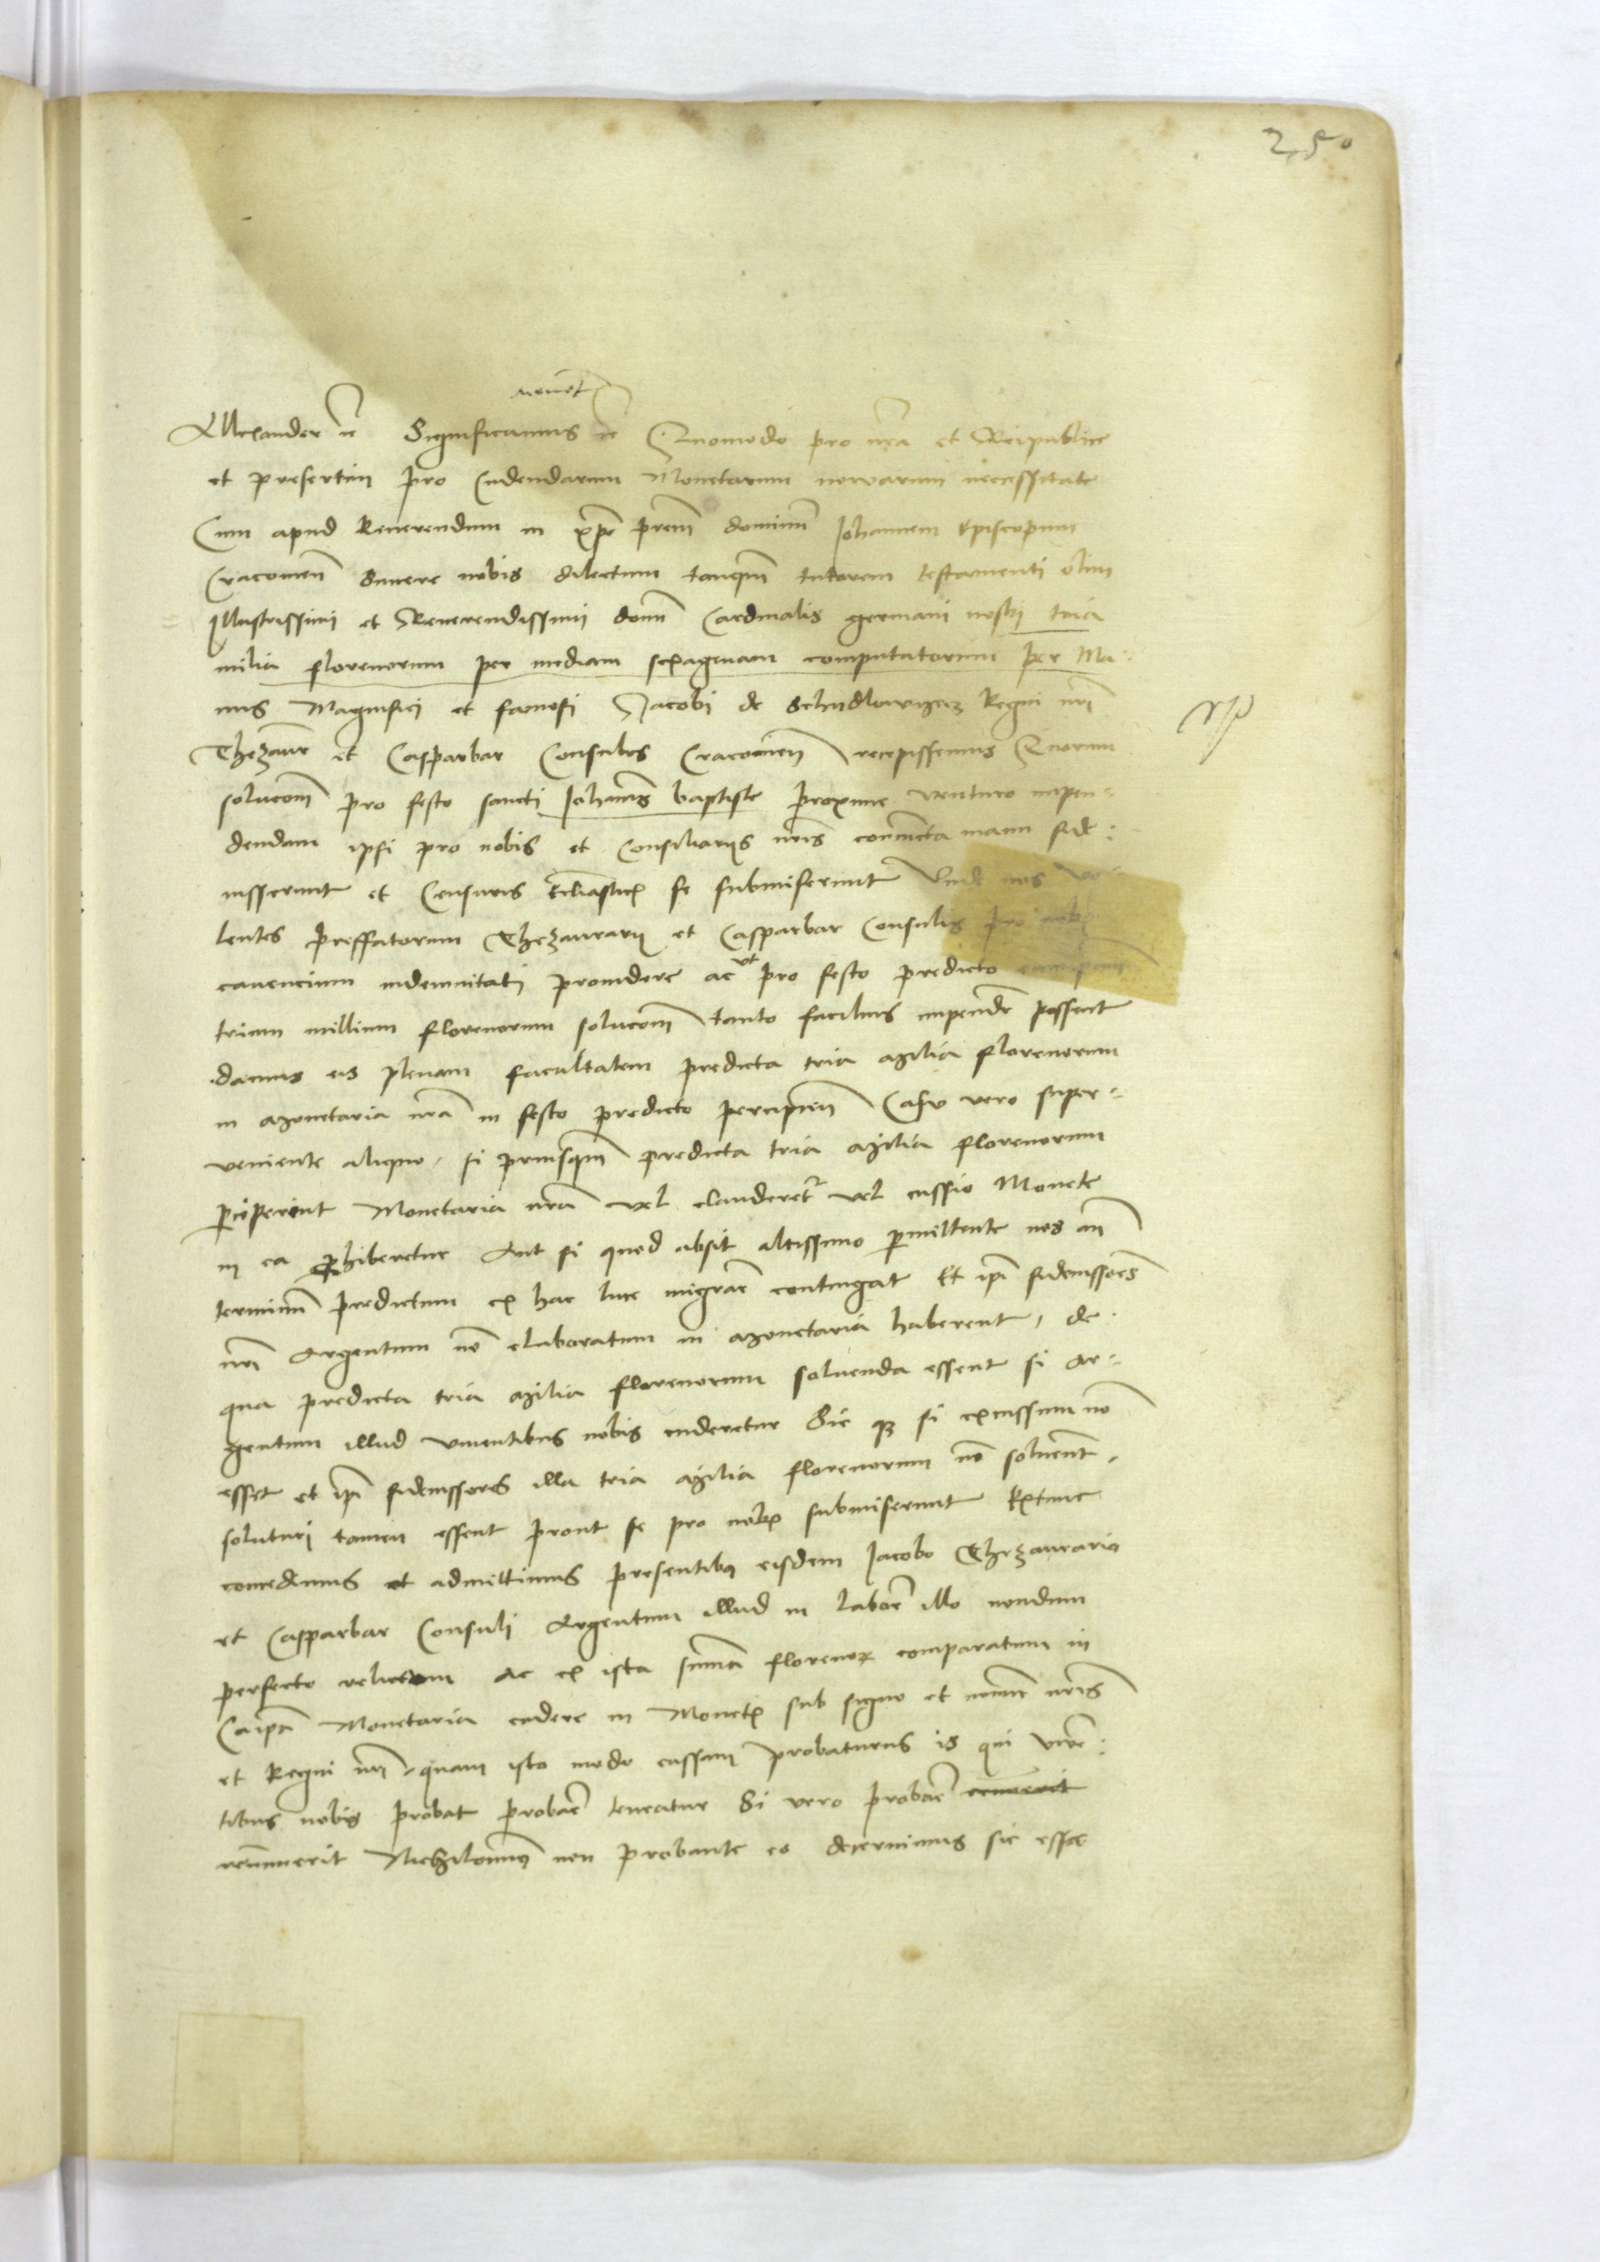 250
Allexander etc Significamus etc Quomodo pro nra et Reipublice
et presertim pro Cudendarum Monetarum novarum necessitate
Cum apud Reverendum in xpo prem dominum Iohannem Episcopum
Cracovien sincere nobis dilectum tanqm tutorem testamenti olim
Illustrissimi et Reverendissimi domi Cardinalis germani nostri tria
milia florenorum per mediam sexagenam computatorum per Ma:
nus Magnifici et famosi Jacobi de Schidlowyecz Regni nri
Thezaur et Casparbar Consules Cracovien recepissemus Quorum
solucom pro festo sancti Iohannis baptiste proxime venturo impen-
dendam ipsi pro nobis et Consiliariis nris coniuncta manu fide:
iusserunt et Censuris Ecliasticis se submiserunt Unde nos vo-
lentes preffatorum Thezaurarii et Casparbar Consulis pro nobis
cavencium indemnitati providere ac ut pro festo predicto
trium millium florenorum solucom tanto facilius impendere possent
damus eis plenam facultatem predicta tria milia florenorum
in monetaria nra in festo predicto percipiendi Casu vero super-
veniente aliquo, si priusqm predicta tria milia florenorum
perciperent Monetaria nra vel clauderetur vel cussio Monete
in ea prohiberetur Aut si quod absit altissimo permittente nos an
terminum predictum ex hac luce migrare contingat Et ipi fideiussores
nri Argentum no elaboratum in monetaria haberent, de
qua predicta tria milia florenorum solvenda essent si Ar-
gentum illud viventibus nobis cuderetur Sic q si excussum no
esset et ipi fideiussores illa tria milia florenorum no solverent,
soluturi tamen essent prout se pro nobis submiserunt Extunc
concedimus et admittimus presentibus eisdem Jacobo Thezaurario
et Casparbar Consuli Argentum illud in labore illo nondum
perfecto relictum Ac ex ista summa florenorum comparatum in
Eaipa Monetaria cudere in Monetis sub signo et nomine nris
et Regni nri, quam isto modo cussam probaturus is qui viven:
tibus nobis probat probare teneatur Si vero probare
rennuerit Nichilominus non probante eo decernimus sic esse